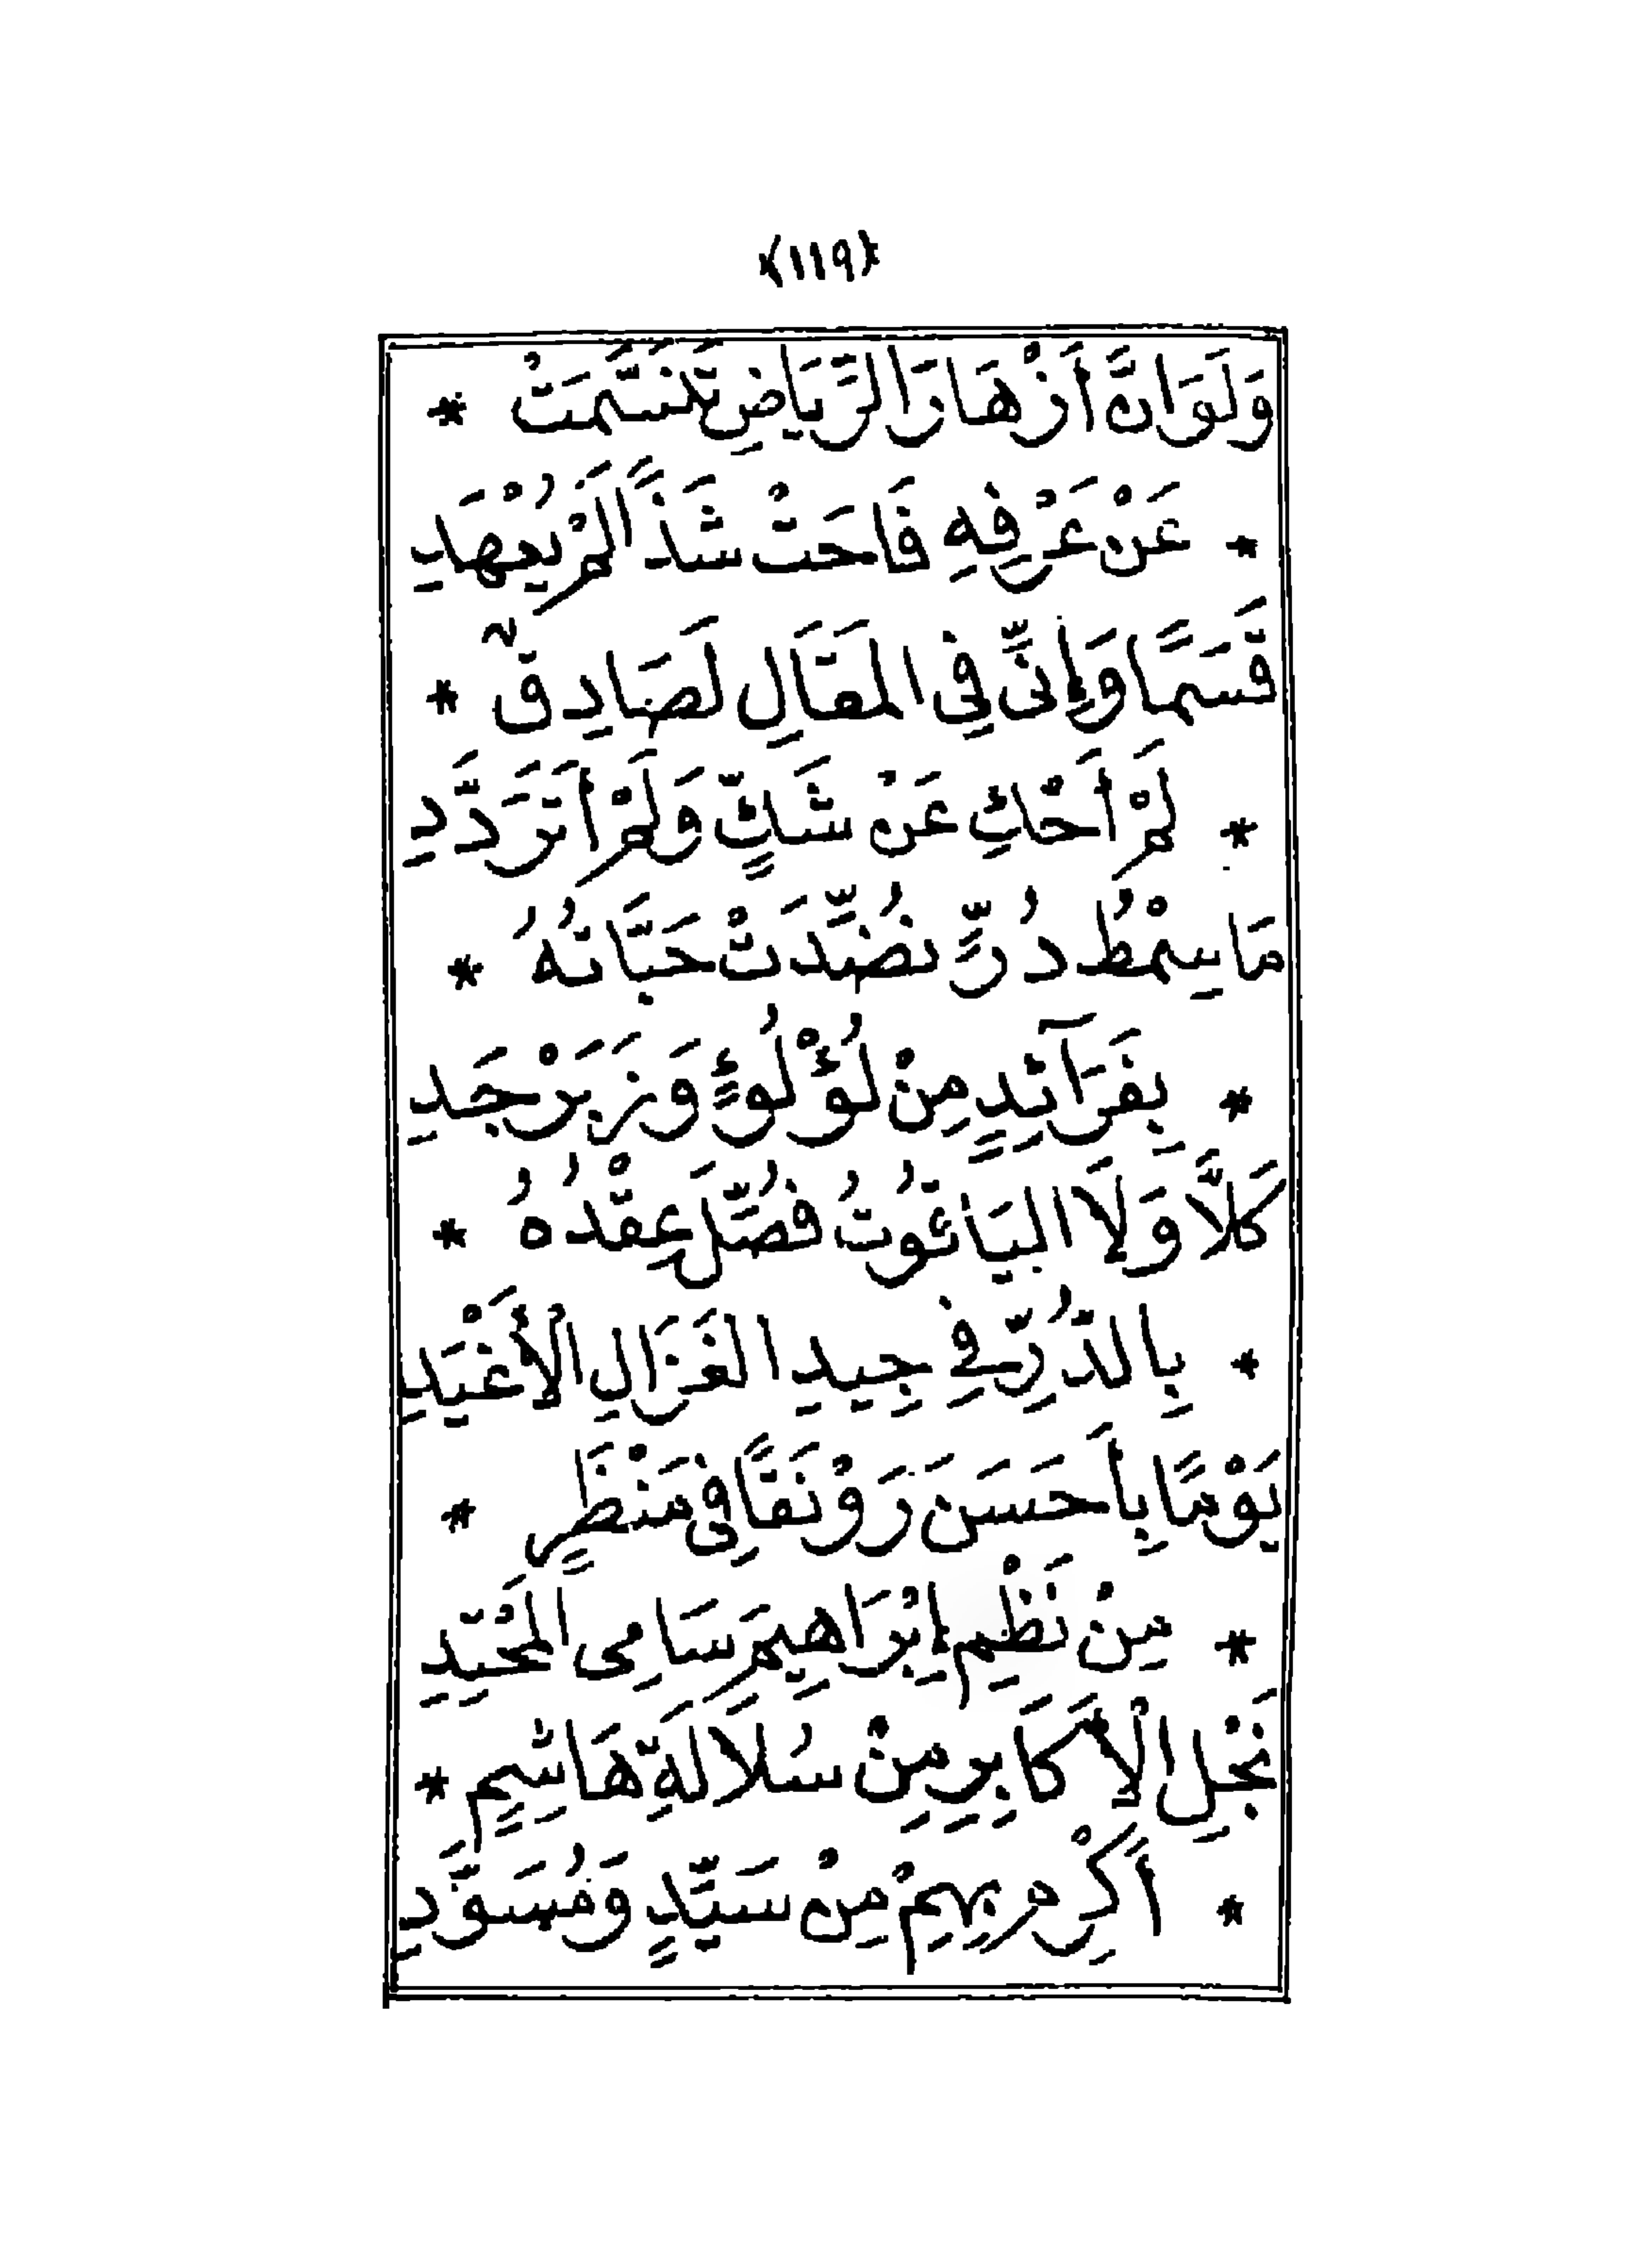 ﴿١١٩﴾
وَلَوَانَّ أَزْهَارَ الرِّيَاضِ تَنَسَّمَتْ *
* عَنْ عَرْفِهِ فَاحَتْ شَذًا لَمْ يُعْهَدِ
قَسَمًا وَإِنِّى فِى المَقَالِ لَصَادِقٌ *
* لَمْ أَحْكِ عَنْ شَكٍّ وَلَمْ أَتَرَدَّدِ
مَا سِمْطُ دُرٍّ نُضِّدَتْ حَبَّاتُهُ *
* بِفَرَآئِدٍ مِنْ لُؤْلُوءٍ وَزَبَرْجَدِ
كَلَّا وَلَا اليَاقُوتُ فُصِّلَ عِقْدُهُ *
* بِالدُّرِّ فِى جِيدِ الغَزَالِ الأَغْيَدِ
يَوْمًا بِأَحْسَنَ رَوْنَقًا فِى مَنْظَرٍ *
* مِنْ نَظْمِ إِبْرَاهِيمَ سَامِى المَحْتِدِ
نَجْلِ الْأَكَابِرِ مِنْ سُلَالَةِ هَاشِمٍ *
* أَكْرِمْ بِهِمُ مِنْ سَيِّدٍ وَمُسَوَّدِ